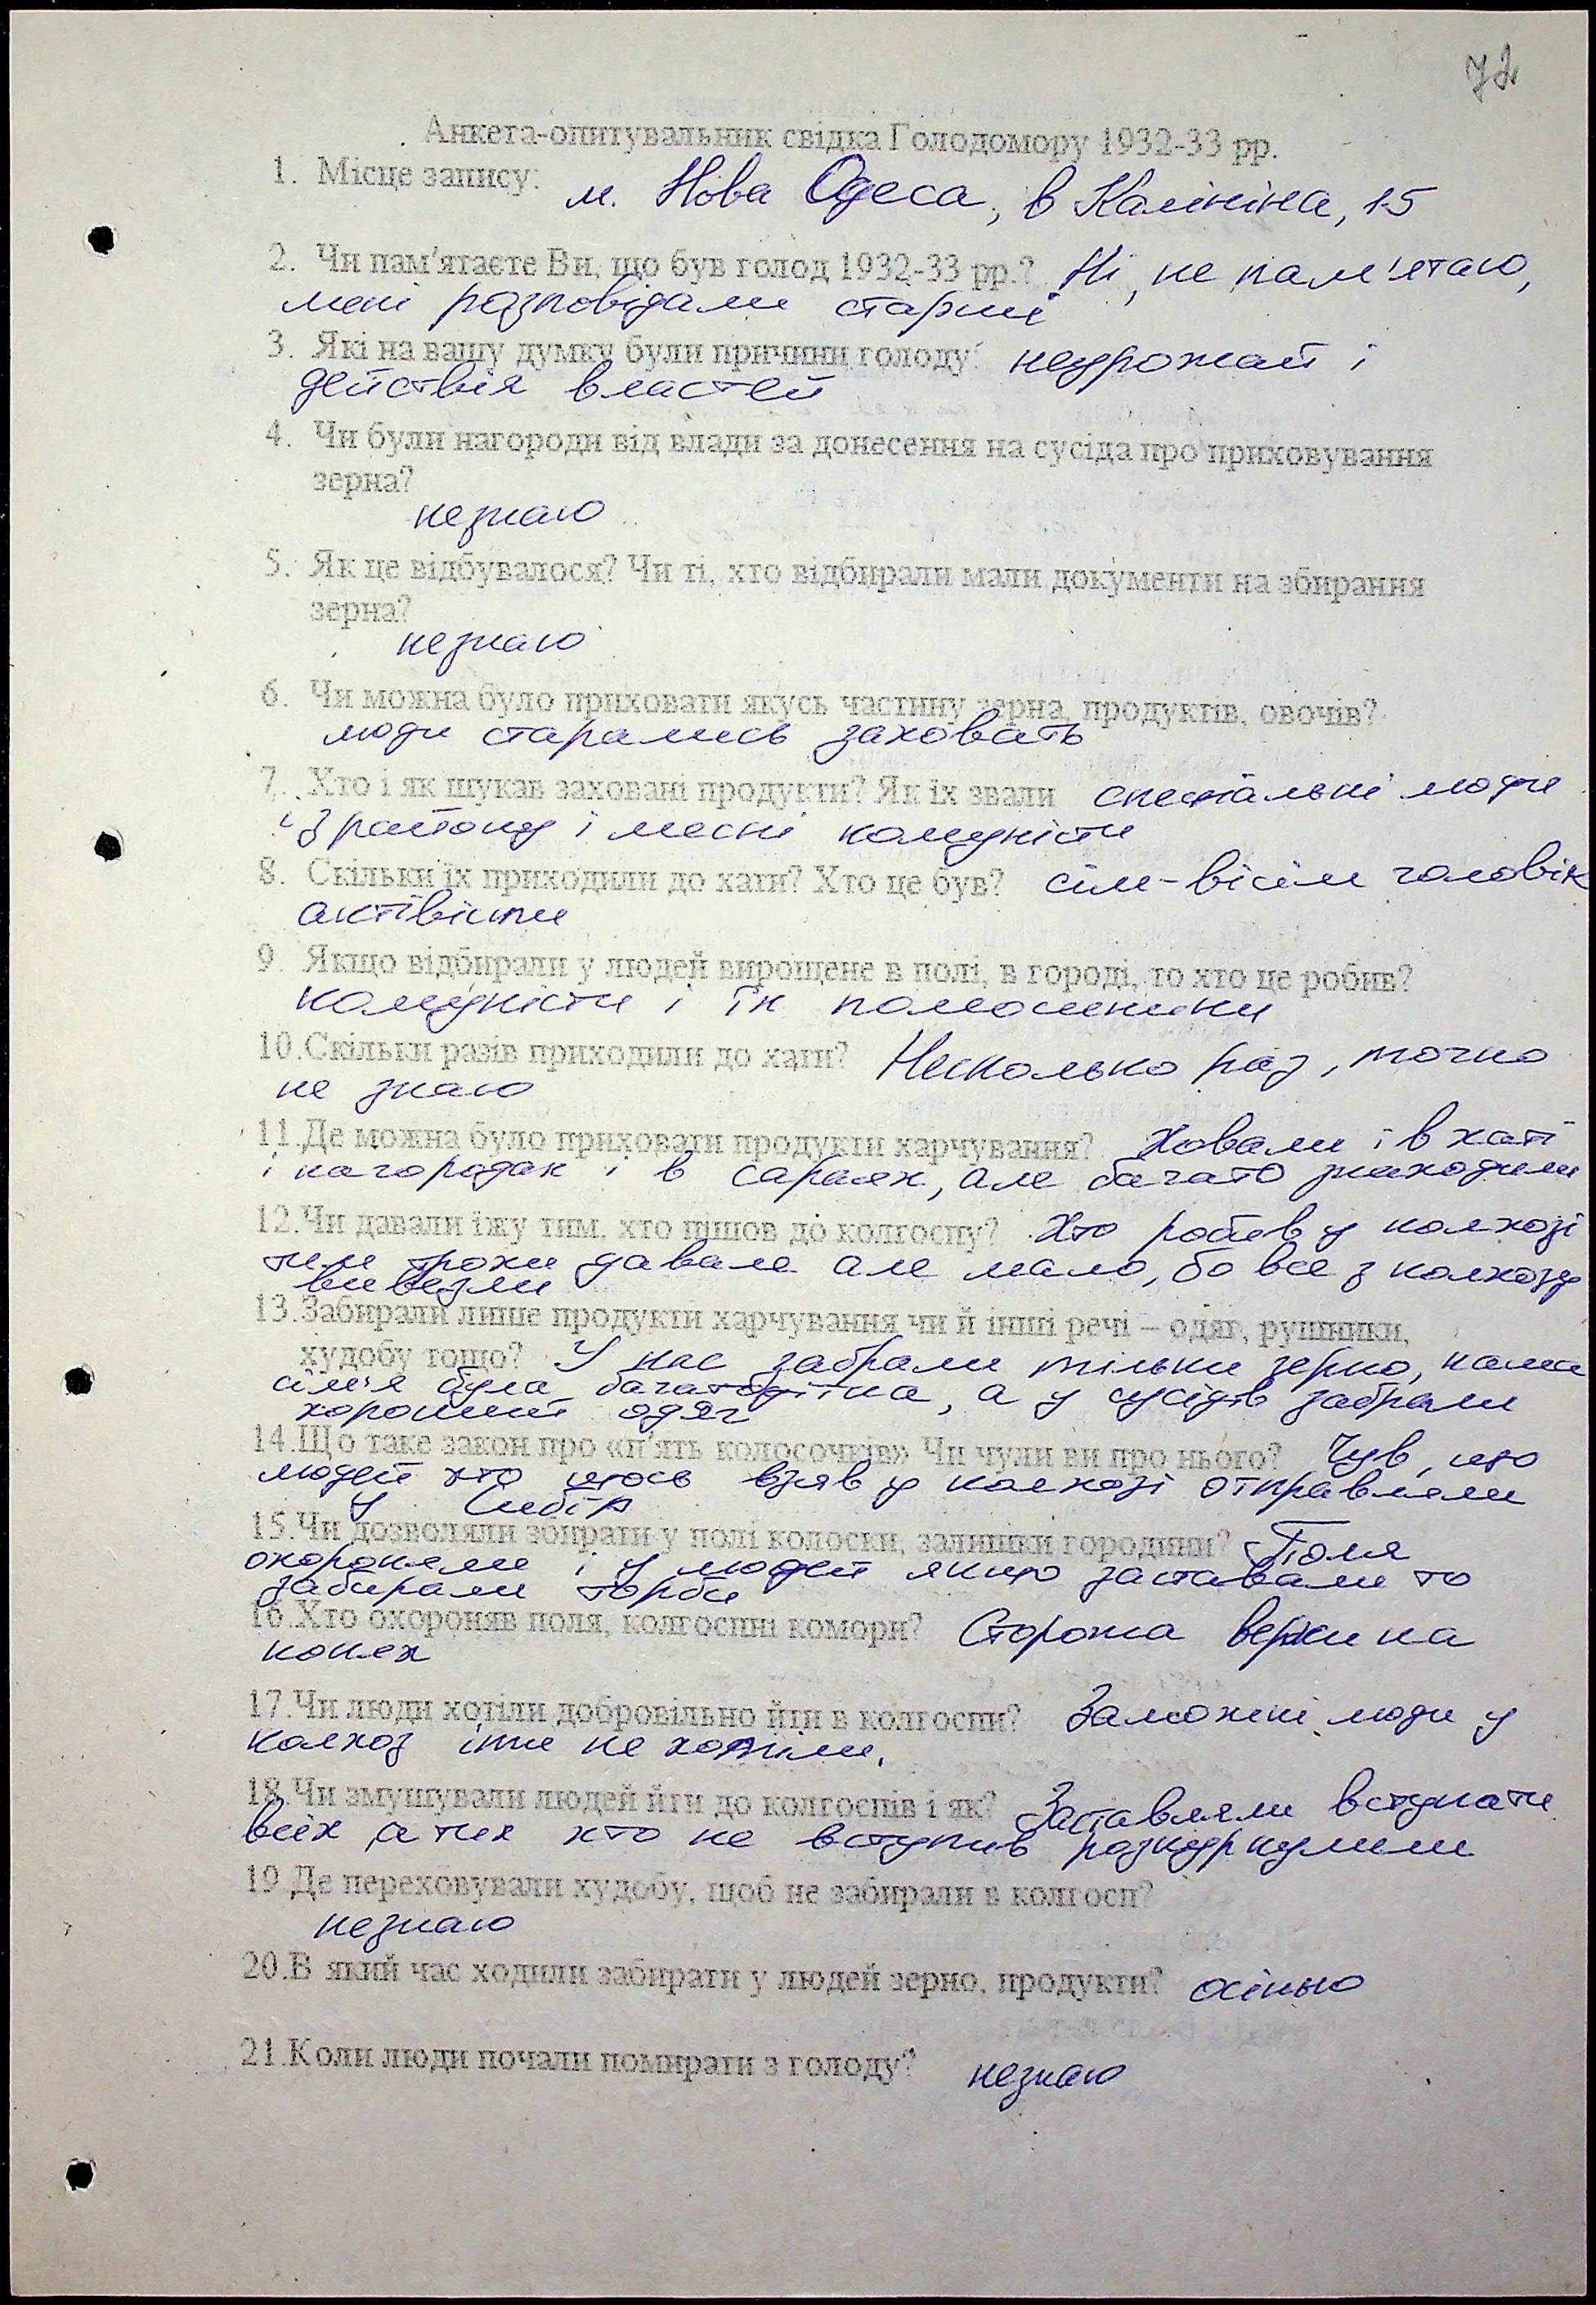 72
Анкета-опитувальник свідка Голодомору 1932-33 рр.
1. Місце запису: м. Нова Одеса, в Калініна, 15
2. Чи пам'ятаєте Ви, що був голод 1932-33 рр.? Ні, не пам'ятаю,
мені розповідали старші
3. Які на вашу думку були причини голоду: неурожай і
действія властей
4. Чи були нагороди від влади за донесення на сусіда про приховування
зерна?
незнаю
5. Як це відбувалося? Чи ті, хто відбирали мали документи на збирання
зерна?
незнаю
6. Чи можна було приховати якусь частину зерна, продуктів, овочів?
люди старались заховать
7. Хто і як шукав заховані продукти? Як їх звали спеціальні люди
із району і месні комуністи
8. Скільки їх приходили до хати? Хто це був? сім-вісім чоловік
актівісти
9. Якщо відбирали у людей вирощене в полі, в городі, то хто це робив?
комуністи і їх помошники
10.Скільки разів приходили до хати? Несколько раз, точно
не знаю
11.Де можна було приховати продукти харчування? Ховали і в хаті
і на городах і в сараях, але багато знаходили
12.Чи давали їжу тим, хто пішов до колгоспу? Хто робив у колхозі
тим трохи давали але мало, бо все з колхозу
вивезли
13.Забирали лише продукти харчування чи й інші речі – одяг, рушники,
худобу тощо? У нас забрали тільки зерно, наша
сім'я була багатодітна, а у сусідів забрали
хороший одяг
14.Що таке закон про «п'ять колосочків» Чи чули ви про нього? Чув, що
людей хто щось взяв у колхозі отправляли
у Сибір
15.Чи дозволяли збирати у полі колоски, залишки городини? Поля
охороняли і у людей якщо заставали то
забирали торби
16.Хто охороняв поля, колгоспні комори? Сторожа верхи на
конях
17.Чи люди хотіли добровільно йти в колгоспи? Заможні люди у
колхоз іти не хотіли.
18.Чи змушували людей йти до колгоспів і як? Заставляли вступати
всіх, а тих хто не вступив розкуркулили
19.Де переховували худобу, щоб не забирали в колгосп?
незнаю
20.В який час ходили забирати у людей зерно, продукти? осінью
21.Коли люди почали помирати з голоду? незнаю